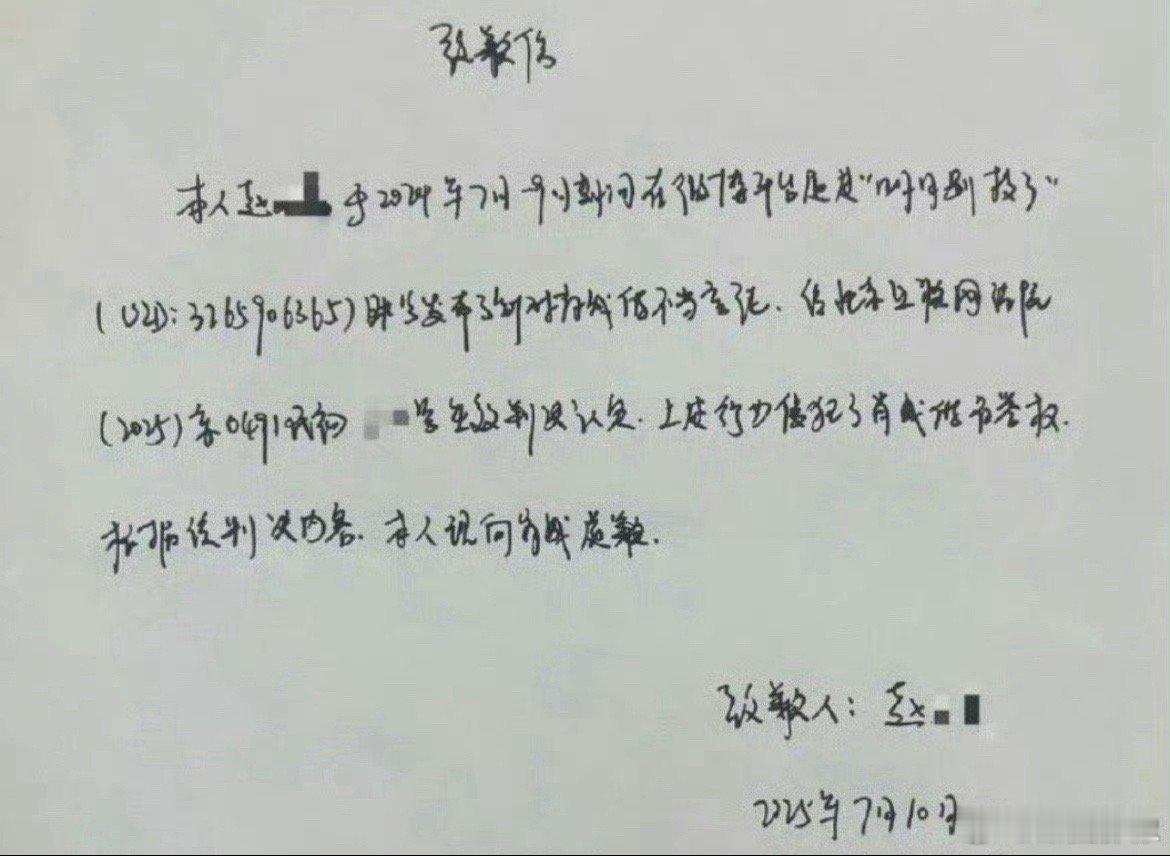 致歉信
本人赵 于2024年7月 期间在微博平台通过"呵呵别 了"
(UID:3265906365)账号发布了针对肖战的不当言论.经北京互联网法院
(2025)京0491民初 号生效判决认定.上述行为侵犯了肖战的名誉权.
根据该判决内容.本人现向肖战致歉.
致歉人:赵
2025年7月10日